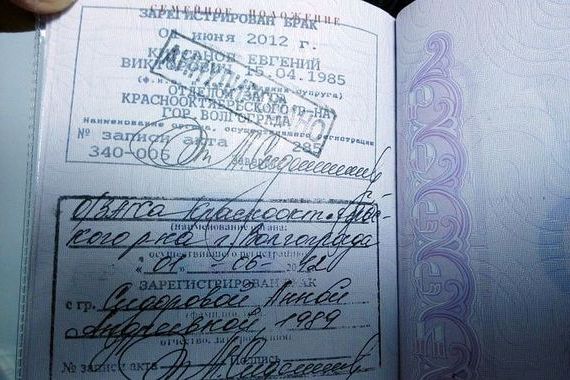 СЕМЕЙНОЕ ПОЛОЖЕНИЕ
ЗАРЕГИСТРИРОВАН БРАК
01 июня 2012 г.
ЕВГЕНИЙ
ВИКТОРОВИЧ 15.04.1985
ОТДЕЛОМ
КРАСНООКТЯБРЬСКОГО Р-НА
ГОР. ВОЛГОГРАДА
Наименование органа, осуществившего регистрацию
№ записи акта 285
340-006
О/ЗАГСа Краснооктябрь-
(наименование органа:
кого р-на г. Волгограда
осуществившего регистрацию)
«01» 06 2012
ЗАРЕГИСТРИРОВАН БРАК
с гр. Сидоровой Анной
Андреевной, 1989
отчество, дата рождения)
№ записи акта Подпись